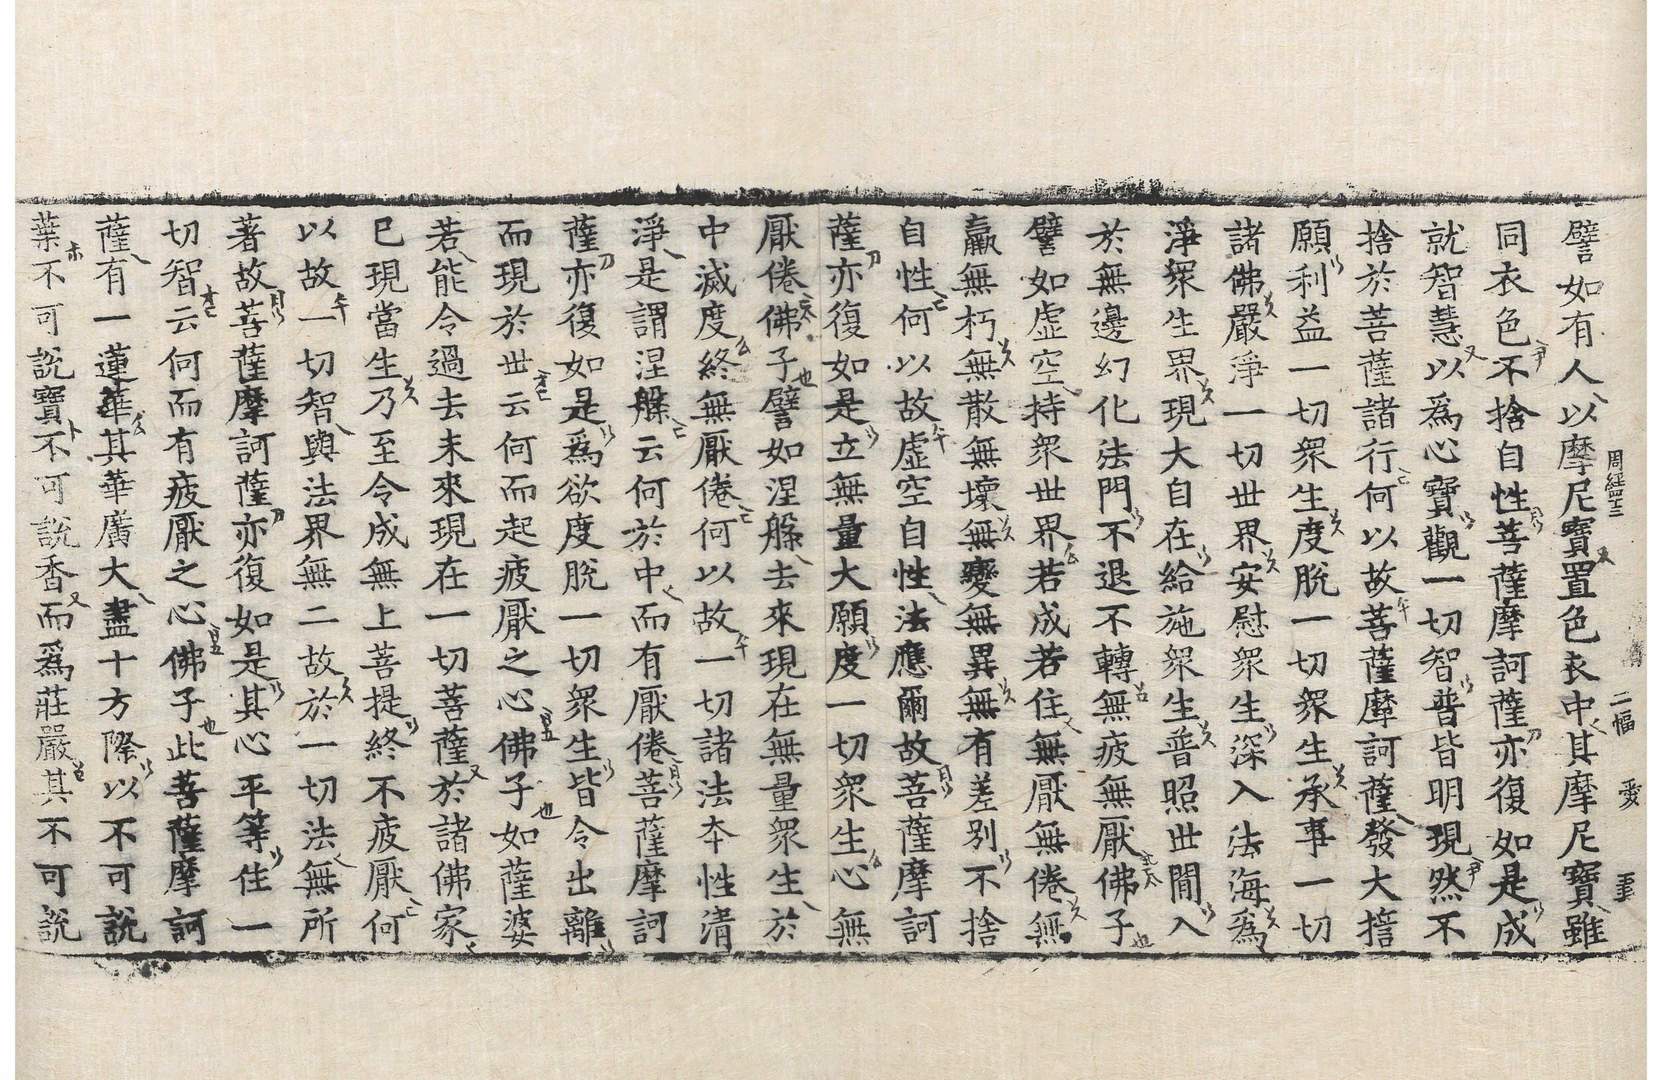 周經卌三 二幅
譬如有人以摩尼寶置色衣中其摩尼寶雖
同衣色不捨自性菩薩摩訶薩亦復如是成
就智慧以爲心寶觀一切智普皆明現然不
捨於菩薩諸行何以故菩薩摩訶薩發大誓
願利益一切衆生度脫一切衆生承事一切
諸佛嚴淨一切世界安慰衆生深入法海爲
淨衆生界現大自在給施衆生普照世間入
於無邊幻化法門不退不轉無疲無厭佛子
譬如虛空持衆世界若成若住無厭無倦無
羸無朽無散無壞無變無異無有差別不捨
自性何以故虛空自性法應爾故菩薩摩訶
薩亦復如是立無量大願度一切衆生心無
厭倦佛子譬如涅槃去來現在無量衆生於
中滅度終無厭倦何以故一切諸法本性清
淨是謂涅槃云何於中而有厭倦菩薩摩訶
薩亦復如是爲欲度脫一切衆生皆令出離
而現於世云何而起疲厭之心佛子如薩婆
若能令過去未來現在一切菩薩於諸佛家
已現當生乃至令成無上菩提終不疲厭何
以故一切智與法界無二故於一切法無所
著故菩薩摩訶薩亦復如是其心平等住一
切智云何而有疲厭之心佛子此菩薩摩訶
薩有一蓮華其華廣大盡十方際以不可說
葉不可說寶不可說香而爲莊嚴其不可說